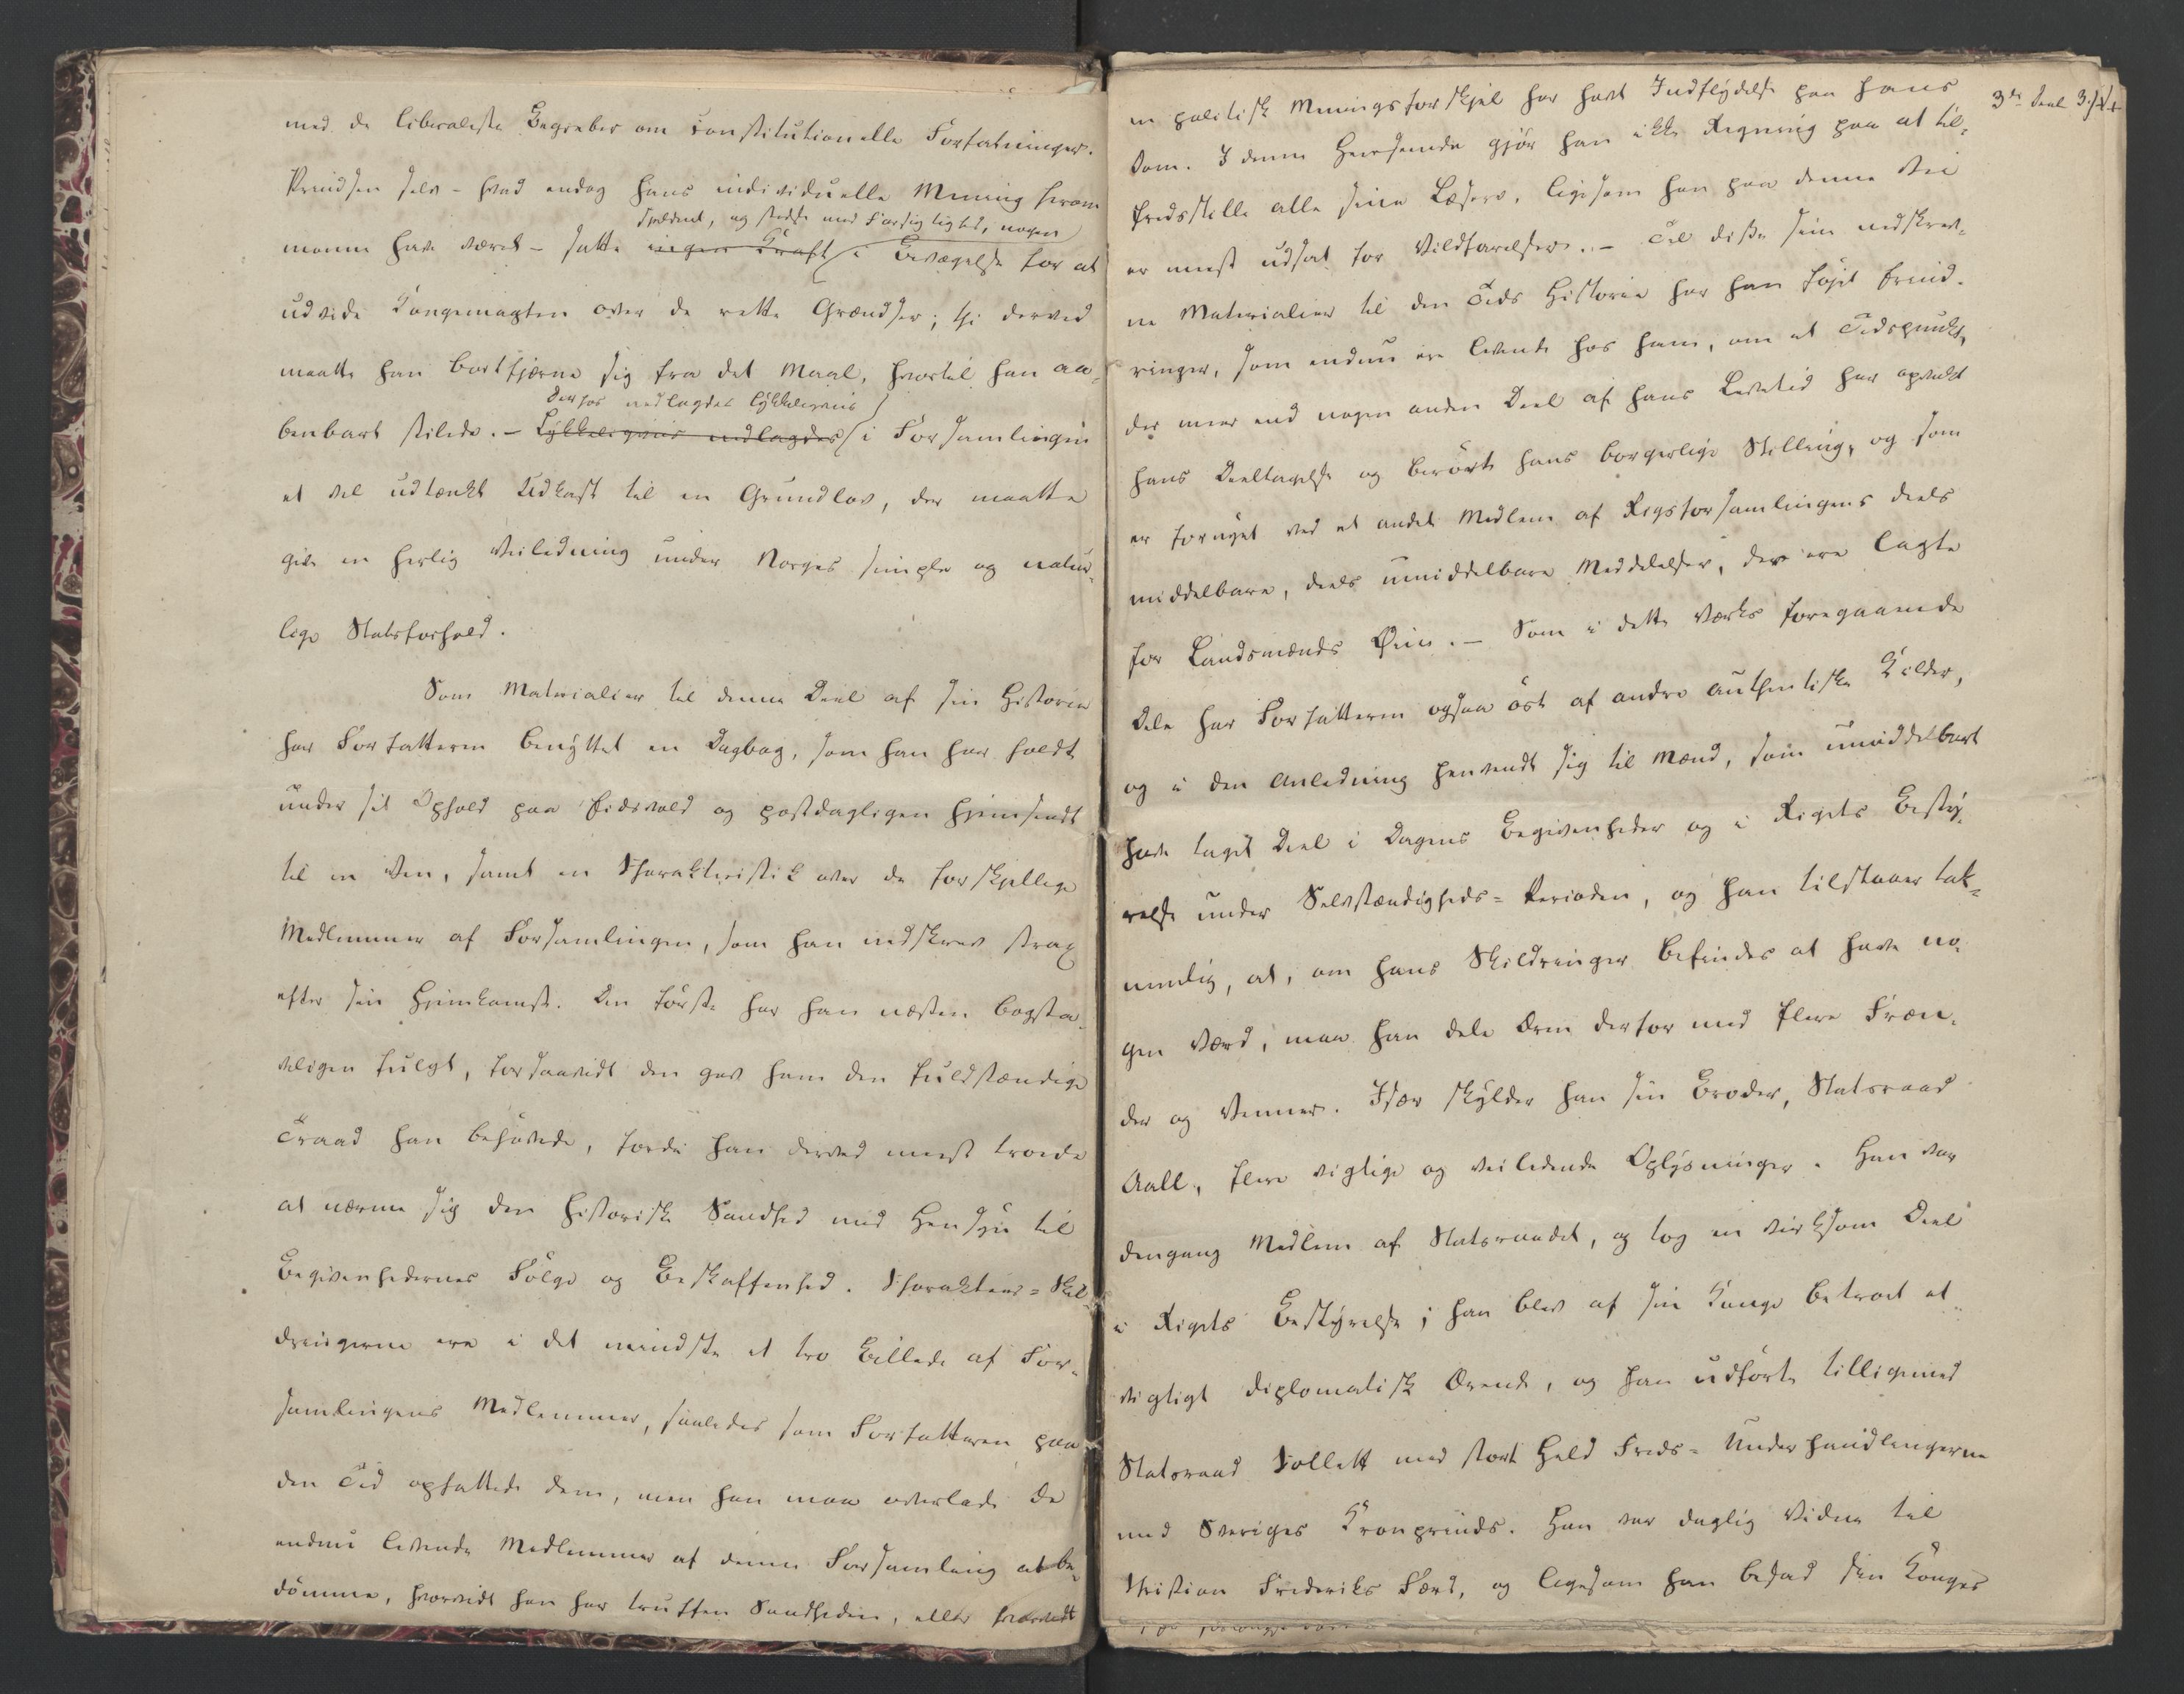 med de liberaleste Begreber om constitutionelle Forfatninger.
Prindsen selv – hvad endog hans individuelle Mening herom
sjeldent, og stedse med Forsigtighed, nogen
monne have været – satte ingen Kraft i Bevægelse for at
udvide Kongemagten over de rette Grændser; thi derved
maatte han bortfjerne sig fra det Maal, hvortil han aa-
Derhos nedlagdes lykkeligviis
benbart stilede. – Lykkeligviis nedlagdes i Forsamlingen
et vel udtænkt Udkast til en Grundlov, der maatte
give en herlig Veiledning under Norges simple og natur-
lige Statsforhold.
Som Materialier til denne Deel af sin Historie
har Forfatteren benyttet en Dagbog, som han har holdt
under sit Ophold paa Eidsvold og postdagligen hjemsendt
til en Ven, samt en Charakteristik over de forskjellige
Medlemmer af Forsamlingen, som han nedskrev strax
efter sin Hjemkomst. Den første har han næsten bogsta-
veligen fulgt, forsaavidt den gav ham den fuldstændige
Traad han behøvede, fordi han derved meest troede
at nærme sig den historiske Sandhed med Hensyn til
Begivenhedernes Følge og Beskaffenhed. Charakteer-Skil-
dringerne ere i det mindste et tro Billede af For-
samlingens Medlemmer, saaledes som Forfatteren paa
den Tid opfattede dem, men han maa overlade de
endnu levende Medlemmer af denne Forsamling at be-
dømme, hvorvidt han har truffen Sandheden, eller hvorvidt
3die Deel 3. Hft
en politisk Meningsforskjel har havt Indflydelse paa hans
Dom. I denne Henseende gjør han ikke Regning paa at til-
fredsstille alle sine Læsere, ligesom han paa denne Vei
er meest udsat for Vildfarelser. – Til disse sine nedskrev-
ne Materialier til den Tids Historie har han føjet Erind-
ringer, som endnu ere levende hos ham, om et Tidspunkt,
der meer end nogen anden Deel af hans Levetid har opvakt
hans Deeltagelse og berørt hans borgerlige Stilling, og som
er fornyet ved et andet Medlem af Rigsforsamlingens deels
middelbare, deels umiddelbare Meddelelser, der ere lagte
for Landsmænds Øine. – Som i dette Værks foregaaende
Dele har Forfatteren ogsaa øst af andre authentiske Kilder,
og i den Anledning henvendt sig til Mænd, som umiddelbart
have taget Deel i Dagens Begivenheder og i Rigets Besty-
relse under Selvstændigheds-Perioden, og han tilstaaer tak-
nemlig, at, om hans Skildringer befindes at have no-
gen Værd, maa han dele Æren derfor med flere Fræn-
der og Venner. Især skylder han sin Broder, Statsraad
Aall, flere vigtige og veiledende Oplysninger. Han var
dengang Medlem af Statsraadet, og tog en virksom Deel
i Rigets Bestyrelse; han blev af sin Konge betroet et
vigtigt diplomatisk Ærende, og han udførte tilligemed
Statsraad Collett med stort Held Freds-Underhandlingerne
med Sveriges Kronprinds. Han var daglig Vidne til
Christian Frederiks Færd, og ligesom han besad sin Konges